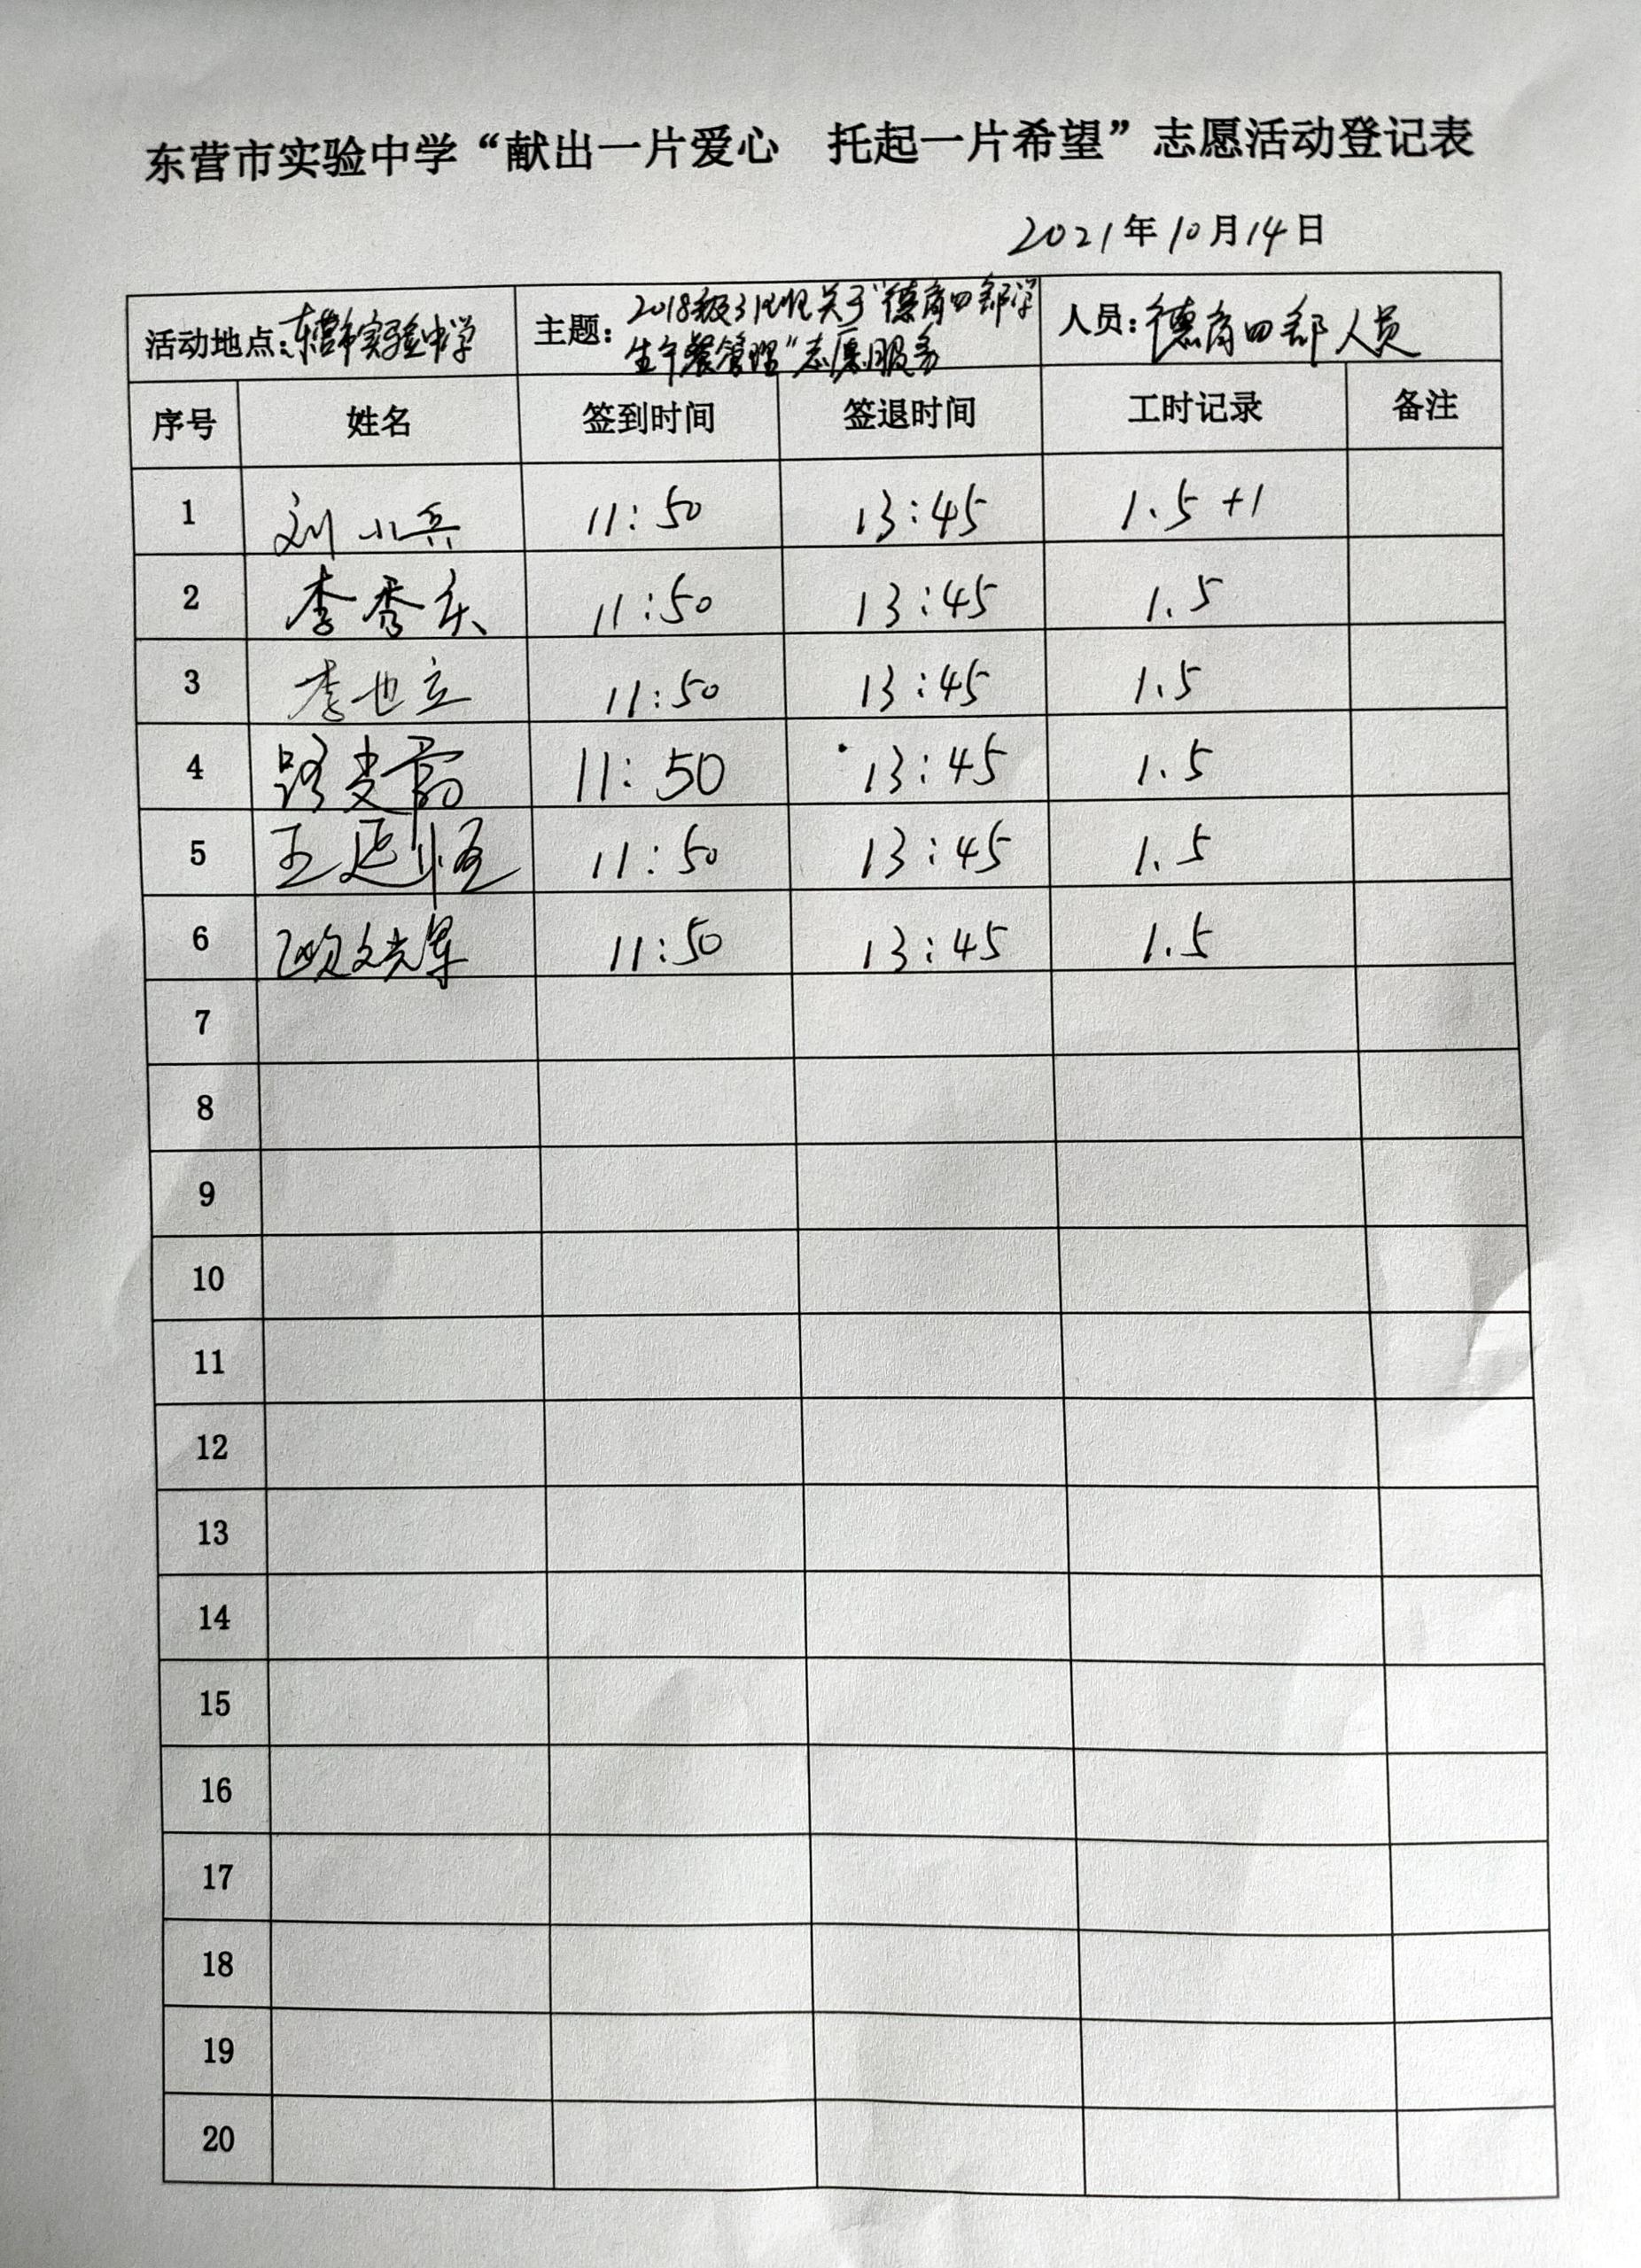 东营市实验中学“献出一片爱心 托起一片希望”志愿活动登记表
2021年10月14日
活动地点：东营市实验中学 主题：2018级31班关于“德育四部学生午餐管理”志愿服务 人员：德育四部人员
序号 姓名 签到时间 签退时间 工时记录 备注
1 刘小兵 11:50 13:45 1.5+1
2 李秀 11:50 13:45 1.5
3 李也立 11:50 13:45 1.5
4 路 11:50 13:45 1.5
5 王延恒 11:50 13:45 1.5
6 欧文光军 11:50 13:45 1.5
7
8
9
10
11
12
13
14
15
16
17
18
19
20